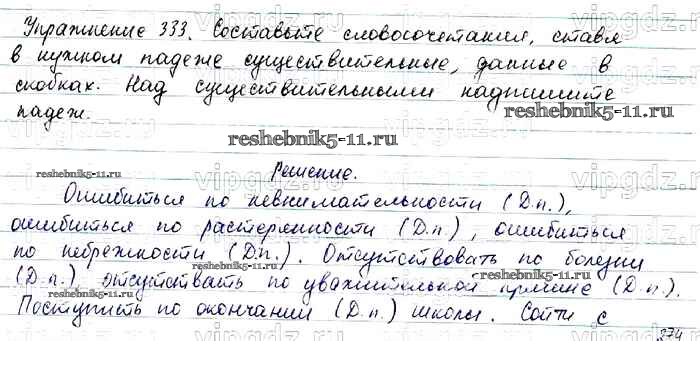 Упражнение 333. Составьте словосочетания, ставя
в нужном падеже существительные, данные в
скобках. Над существительными надпишите
падеж.
reshebnik5-11.ru
reshebnik5-11.ru
reshebnik5-11.ru
Решение.
Ошибиться по невнимательности (Д.п.),
ошибиться по растерянности (Д.п.), ошибиться
по небрежности (Д.п.). Отсутствовать по болезни
reshebnik5-11.ru
reshebnik5-11.ru
(Д.п.) отсутствать по уважительной причине (Д.п.).
reshebnik5-11.ru
Поступить по окончании (Д.п.) школы. Сойти с
274